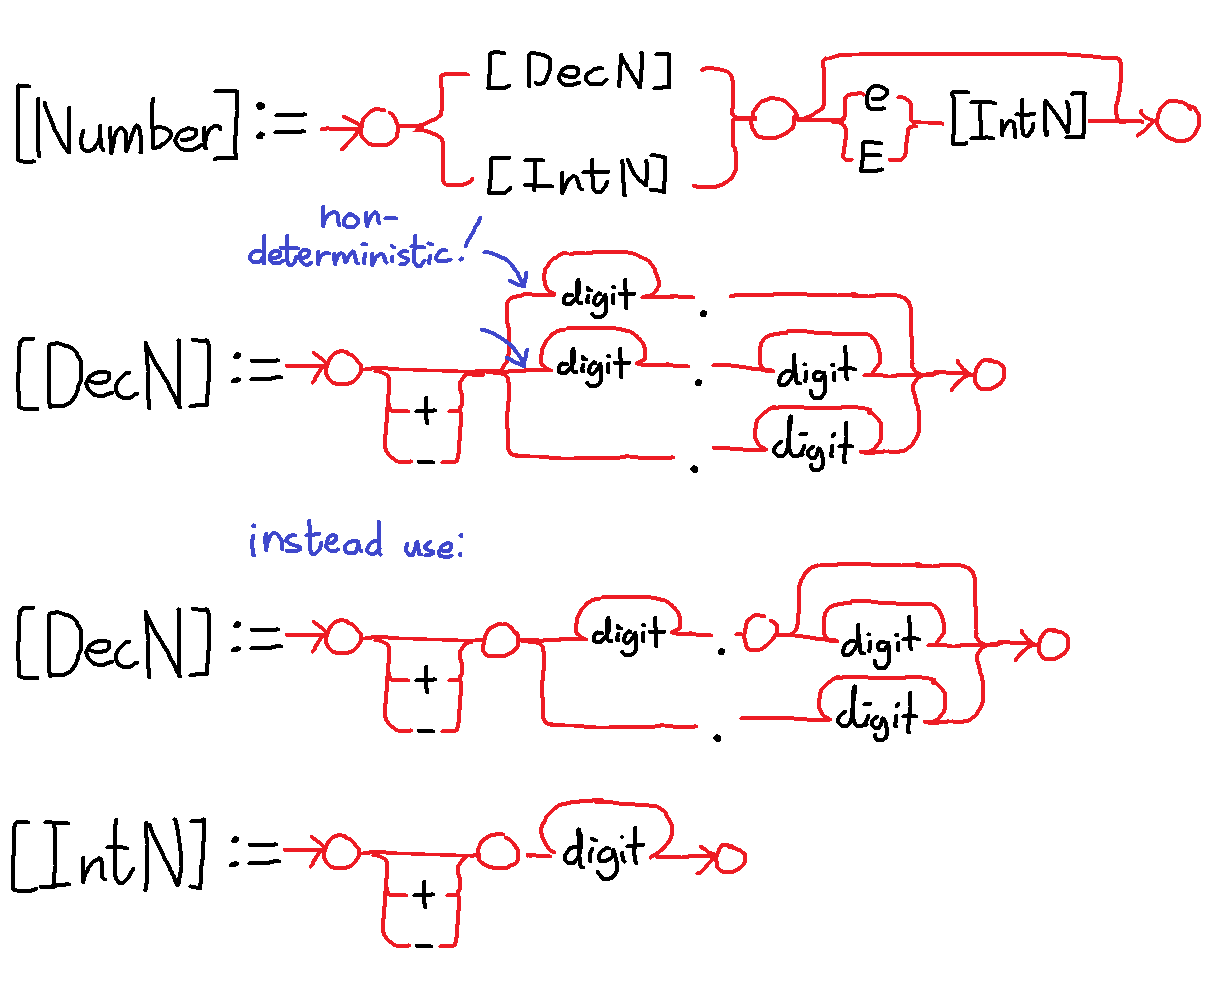 [Number] := [DecN] e [IntN]
[IntN] E
non-
deterministic!
digit .
[DecN] := digit . digit
+ . digit
-
instead use:
[DecN] := digit . digit
+ . digit
-
[IntN] := digit
+
-